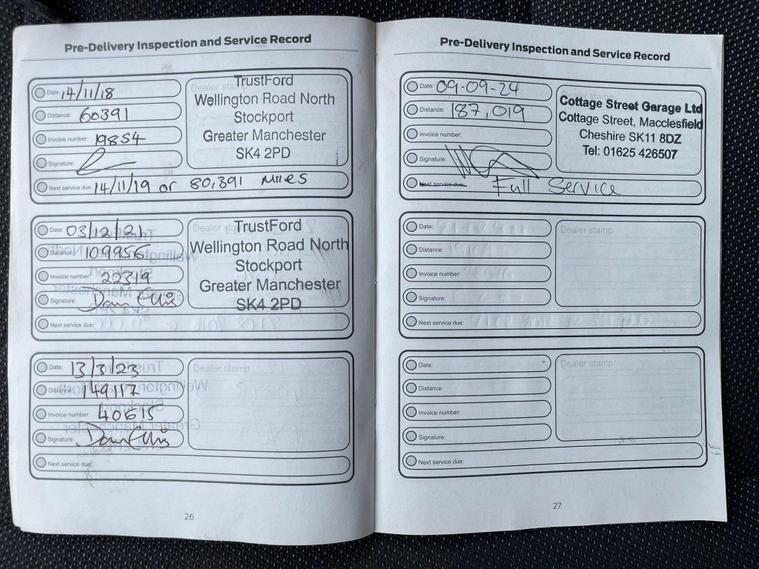 Pre-Delivery Inspection and Service Record
Date: 14/11/18
Distance: 60391
Invoice number: 19854
Signature:
Next service due: 14/11/19 or 80,391 miles
Dealer stamp
TrustFord
Wellington Road North
Stockport
Greater Manchester
SK4 2PD
Date: 03/12/21
Distance: 109956
Invoice number: 22319
Signature: Dan Ellis
Next service due:
Dealer stamp
TrustFord
Wellington Road North
Stockport
Greater Manchester
SK4 2PD
Date: 13/3/23
Distance: 149117
Invoice number: 40615
Signature: Dan Ellis
Next service due:
Dealer stamp
26
Pre-Delivery Inspection and Service Record
Date: 09-09-24
Distance: 187,019
Invoice number:
Signature:
Next service due: Full Service
Dealer stamp
Cottage Street Garage Ltd
Cottage Street, Macclesfield
Cheshire SK11 8DZ
Tel: 01625 426507
Date:
Distance:
Invoice number:
Signature:
Next service due:
Dealer stamp
Date:
Distance:
Invoice number:
Signature:
Next service due:
Dealer stamp
27